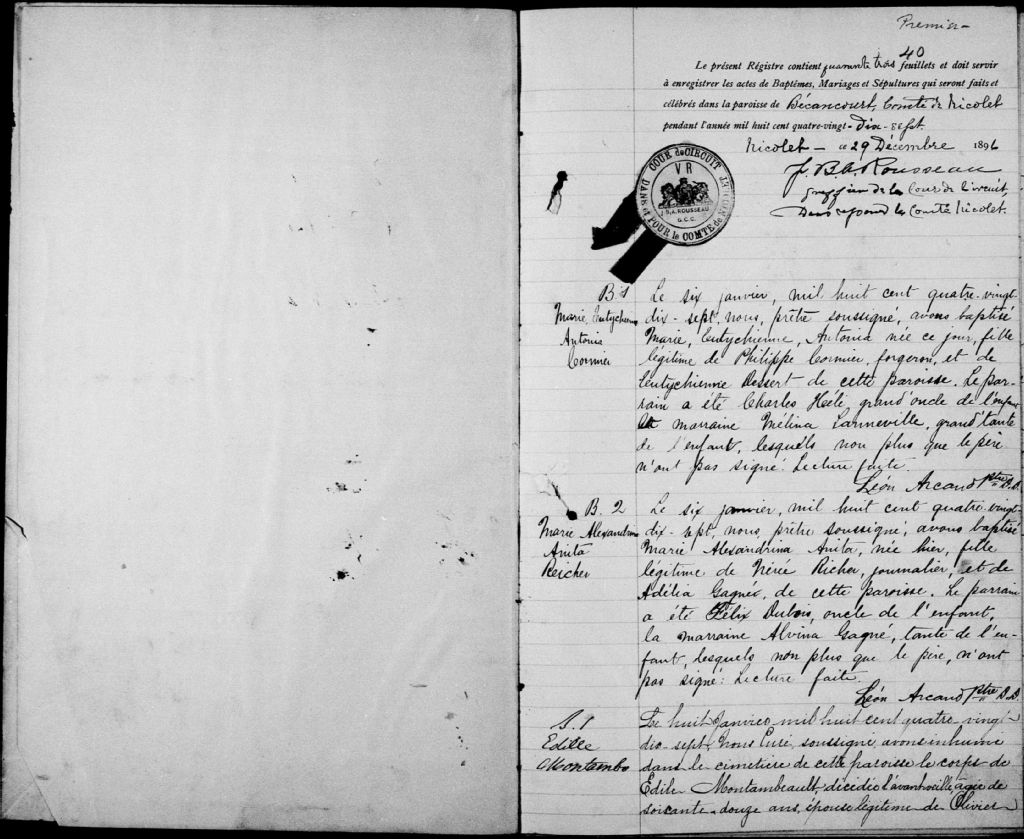 Premier
40
Le présent Régistre contient quarante trois feuillets et doit servir
à enregistrer les actes de Baptêmes, Mariages et Sépultures qui seront faits et
célébrés dans la paroisse de Bécancourt, Comté de Nicolet
pendant l'année mil huit cent quatre-vingt-dix-sept.
Nicolet - ce 29 Décembre 1896
J. B. A. Rousseau
greffier de la Cour de Circuit,
Dans et pour le Comté Nicolet.
COUR de CIRCUIT
DANS et POUR le COMTÉ de NICOLET
VR
J.B.A. ROUSSEAU
G.C.C.
B. 1
Marie, Eutychienne
Antonia
Cormier
Le six janvier, mil huit cent quatre-vingt-
dix-sept, nous, prêtre soussigné, avons baptisé
Marie, Eutychienne, Antonia née ce jour, fille
légitime de Philippe Cormier, forgeron, et de
Eutychienne Dessert de cette paroisse. Le par-
rain a été Charles Héli grand'oncle de l'enfant
la marraine Mélina Lanneville, grand'tante
de l'enfant, lesquels non plus que le père
n'ont pas signé. Lecture faite.
Léon Arcand Ptre D.D.
B. 2
Marie Alexandrina
Anita
Reicher
Le six janvier, mil huit cent quatre vingt-
dix-sept, nous, prêtre soussigné, avons baptisé
Marie Alexandrina Anita, née hier, fille
légitime de Nérée Richer, journalier, et de
Adélia Gagner, de cette paroisse. Le parrain
a été Félix Dubois, oncle de l'enfant,
la marraine Alvina Gagné, tante de l'en-
fant, lesquels non plus que le père, n'ont
pas signé: Lecture faite.
Léon Arcand Ptre D.D.
S. 1
Edille
Montambo
Le huit Janvier mil huit cent quatre vingt
dix-sept, Nous Curé, soussigné avons inhumé
dans le cimetière de cette paroisse le corps de
Edile Montambeault, décédée l'avant veille, agée de
soixante-douze ans, épouse légitime de Olivier